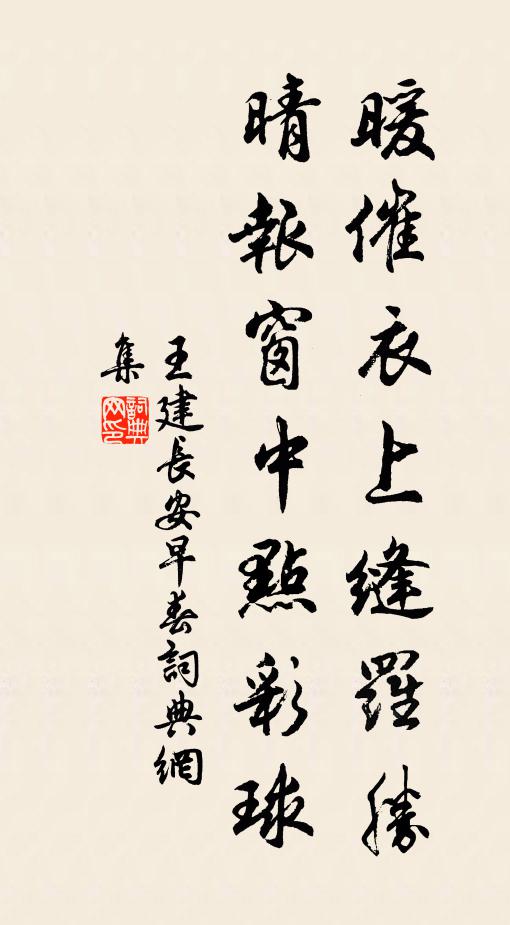 暖催衣上縫羅勝
晴報窗中點彩球
王建長安早春詞典網
集
詞典
网印